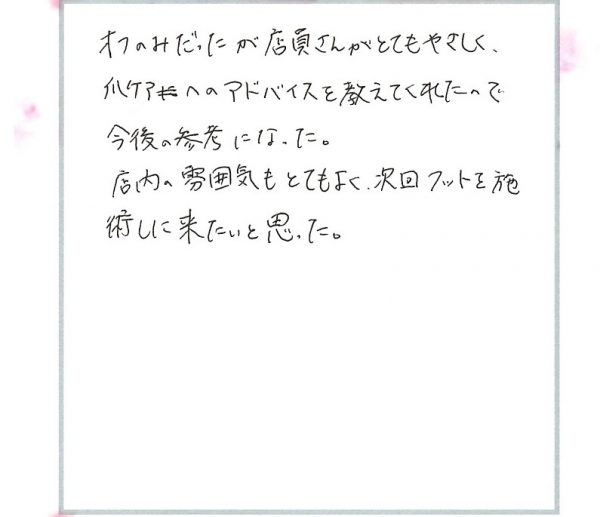 オフのみだったが店員さんがとてもやさしく、
爪ケアへのアドバイスを教えてくれたので
今後の参考になった。
店内の雰囲気もとてもよく、次回フットを施
術しに来たいと思った。